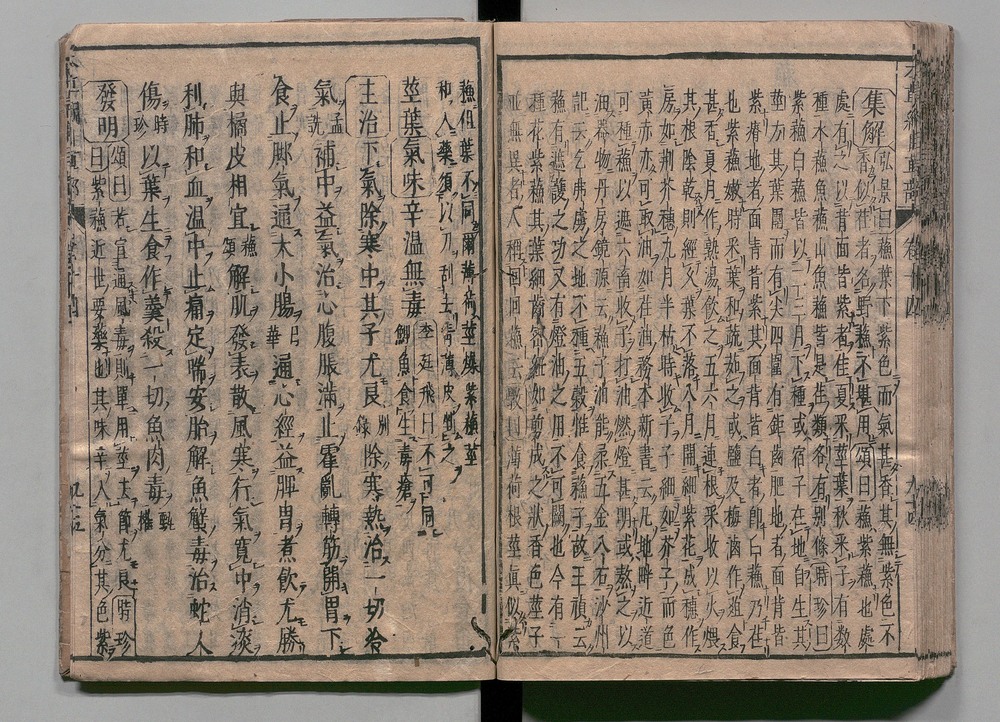 集解弘景曰蘇葉下紫色而氣甚香其無紫色不
香似荏者名野蘇不堪用頌曰紫蘇也處
處有之以背面皆紫者佳夏采莖葉秋采子有數
種水蘇魚蘇山魚蘇皆是荏類各有別條時珍曰
紫蘇白蘇皆以二三月下種或宿子在地自生其
莖方其葉團而有尖四圍有鉅齒肥地者面背皆
紫瘠地者面青背紫其面背皆白者即白蘇乃荏
也紫蘇嫩時采葉和蔬茹之或鹽及梅滷作葅食
甚香夏月作熟湯飲之五六月連根采收以火煨
其根陰乾則經久葉不落八月開細紫花成穗作
房如荊芥穗九月半枯時收子子細如芥子而色
黃赤亦可取油如荏油務本新書云凡地畔近道
可種蘇以遮六畜收子打油燃燈甚明或熬之以
油器物丹房鏡源云蘇子油能柔五金八石沙州
記云乞弗虜之地不種五穀惟食蘇子故王禎云
蘇有遮護之功又有燈油之用不可闕也今有一
種花紫蘇其葉細齒密紐如剪成之狀香色莖子
並無異者人稱回回蘇云斅曰薄荷根莖真似紫
蘇但葉不同爾薄荷莖燥紫蘇莖
和入藥須以刀刮去青薄皮剉之
莖葉氣味辛溫無毒李廷飛曰不可同
鯉魚食生毒瘡
主治下氣除寒中其子尤良別錄除寒熱治一切冷
氣孟詵補中益氣治心腹脹滿止霍亂轉筋開胃下
食止脚氣通大小腸日華通心經益脾胃煮飲尤勝
與橘皮相宜蘇頌解肌發表散風寒行氣寬中消痰
利肺和血溫中止痛定喘安胎解魚蟹毒治蛇人
傷時珍以葉生食作羹殺一切魚肉毒甄權
發明頌曰若宣通風毒則單用莖去節尤良時珍
曰紫蘇近世要藥也其味辛入氣分其色紫